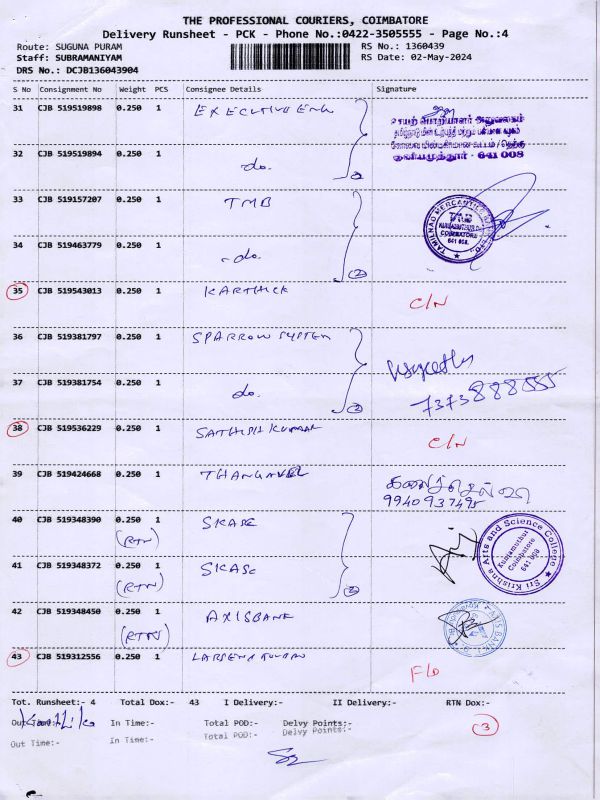 THE PROFESSIONAL COURIERS, COIMBATORE
Delivery Runsheet - PCK - Phone No.:0422-3505555 - Page No.:4
Route: SUGUNA PURAM RS No.: 1360439
Staff: SUBRAMANIYAM RS Date: 02-May-2024
DRS No.: DCJB136043904
S No Consignment No Weight PCS Consignee Details Signature
31 CJB 519519898 0.250 1 EXECUTIVE ENG
செயற் பொறியாளர் அலுவலகம்
32 CJB 519519894 0.250 1 -do. 2
641 008
33 CJB 519157207 0.250 1 TMB
TAMILNAD MERCANTILE BANK
COIMBATORE
641 008.
34 CJB 519463779 0.250 1 -do. 2
35 CJB 519543013 0.250 1 KARTHICK C/N
36 CJB 519381797 0.250 1 SPARROW SYSTEM
37 CJB 519381754 0.250 1 do. 2
7373888555
38 CJB 519536229 0.250 1 SATHISH KUMAR C/N
39 CJB 519424668 0.250 1 THANGAVEL
9940937495
40 CJB 519348390 0.250 1 SKASC
(RTN)
Sri Krishna Arts and Science College
Kuniamuthur
Coimbatore
641 008
41 CJB 519348372 0.250 1 SKASC
(RTN) 2
42 CJB 519348450 0.250 1 AXIS BANK
(RTN)
AXIS BANK
43 CJB 519312556 0.250 1 F/D
Tot. Runsheet:- 4 Total Dox:- 43 I Delivery:- II Delivery:- RTN Dox:-
Out Time:- In Time:- Total POD:- Delvy Points:- 3
Out Time:- In Time:- Total POD:- Delvy Points:-